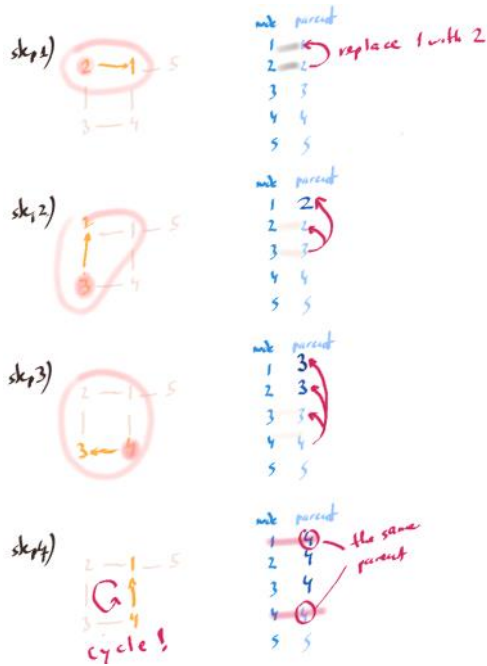 step1)
2 1 5
3 4
node parent
1 1
2 2
3 3
4 4
5 5
replace 1 with 2
step2)
2 1 5
3 4
node parent
1 2
2 2
3 3
4 4
5 5
step3)
2 1 5
3 4
node parent
1 3
2 3
3 3
4 4
5 5
step4)
2 1 5
3 4
cycle!
node parent
1 4
2 4
3 4
4 4
5 5
the same
parent